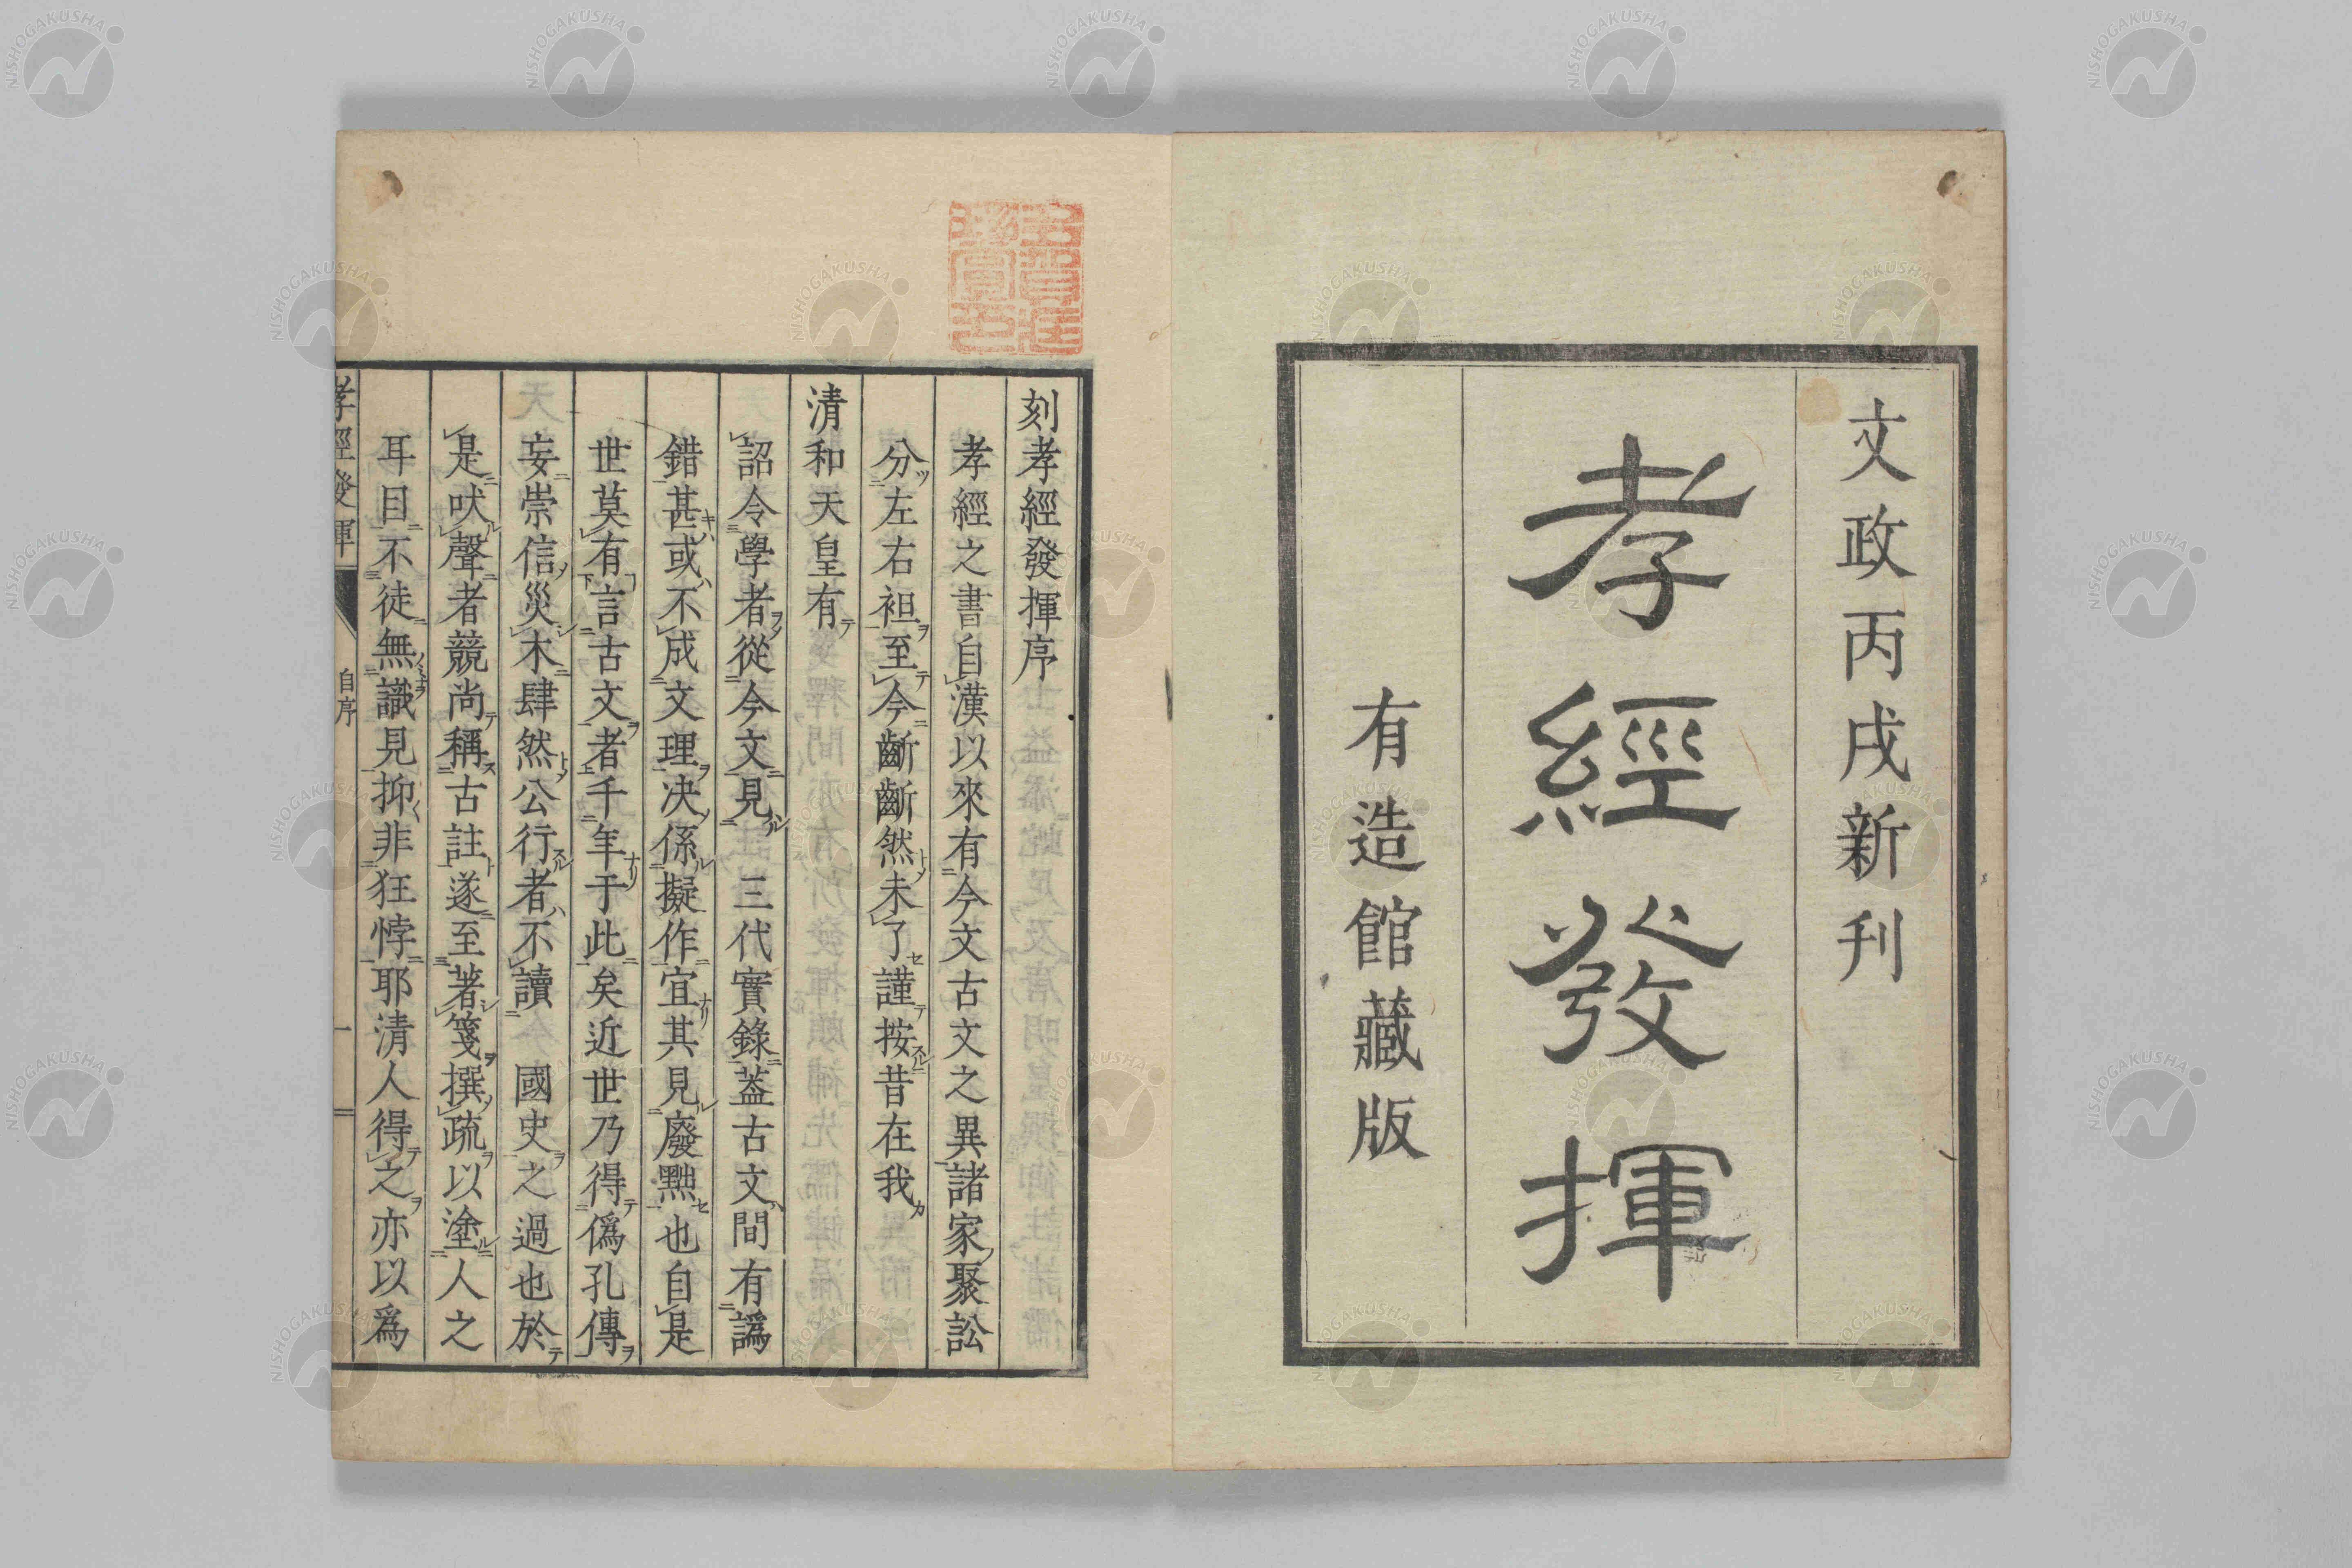 文政丙戌新刊
孝經發揮
有造館藏版
刻孝經發揮序
孝經之書自漢以來有今文古文之異諸家聚訟
分左右袒至今齗齗然未了謹按昔在我
清和天皇有
詔令學者從今文見 三代實錄葢古文間有譌
錯甚或不成文理决係擬作宜其見廢黜也自是
世莫有言古文者千年于此矣近世乃得僞孔傳
妄崇信災木肆然公行者不讀 國史之過也於
是吠聲者競尚稱古註遂至著箋撰疏以塗人之
耳目不徒無識見抑非狂悖耶清人得之亦以爲
孝經發揮
自序
一
NISHOGAKUSHA